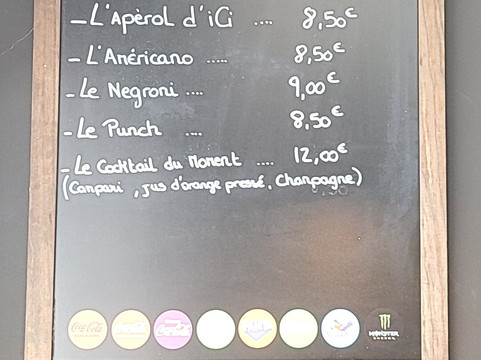 - L'Apérol d'iCi .... 8,50€
- L'Américano ..... 8,50€
- Le Negroni .... 9,00€
- Le Punch .... 8,50€
- Le Cocktail du Moment .... 12,00€
(Campari, jus d'orange pressé, Champagne)
Coca-Cola
MONSTER
ENERGY